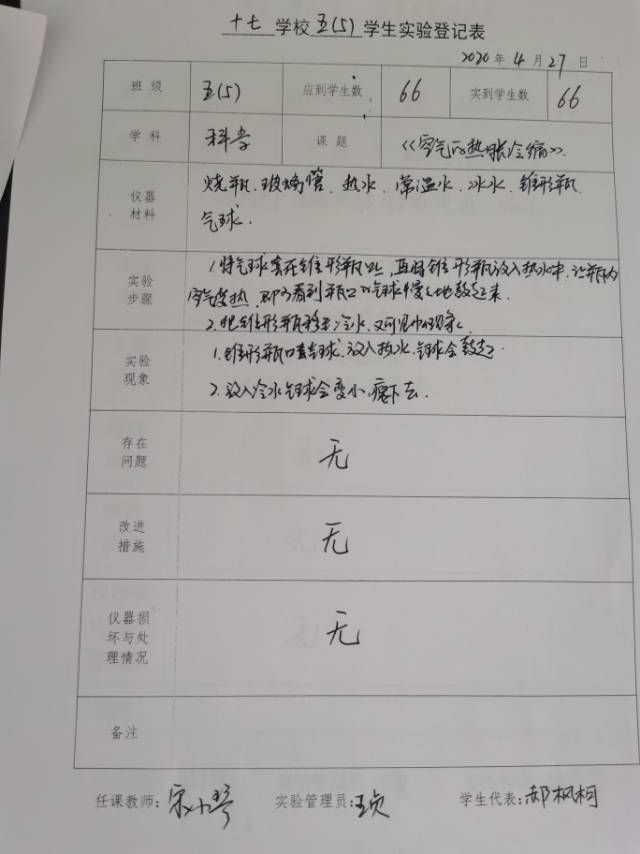 十七 学校 五(5) 学生实验登记表
2020 年 4 月 27 日
班 级 五(5) 应到学生数 66 实到学生数 66
学 科 科学 课 题 《空气的热胀冷缩》
仪器
材料
烧瓶、玻璃管、热水、常温水、冰水、锥形瓶、
气球.
实验
步骤
1.将气球套在锥形瓶口上,再将锥形瓶放入热水中,让瓶内
空气受热,即可看到瓶口的气球慢慢地鼓起来.
2.把锥形瓶移至冷水,又可见
实验
现象
1.锥形瓶口套气球,放入热水,气球会鼓起.
2.放入冷水气球会变小,瘪下去.
存在
问题
无
改进
措施
无
仪器损
坏与处
理情况
无
备注
任课教师: 宋小琴 实验管理员: 学生代表: 郝枫柯